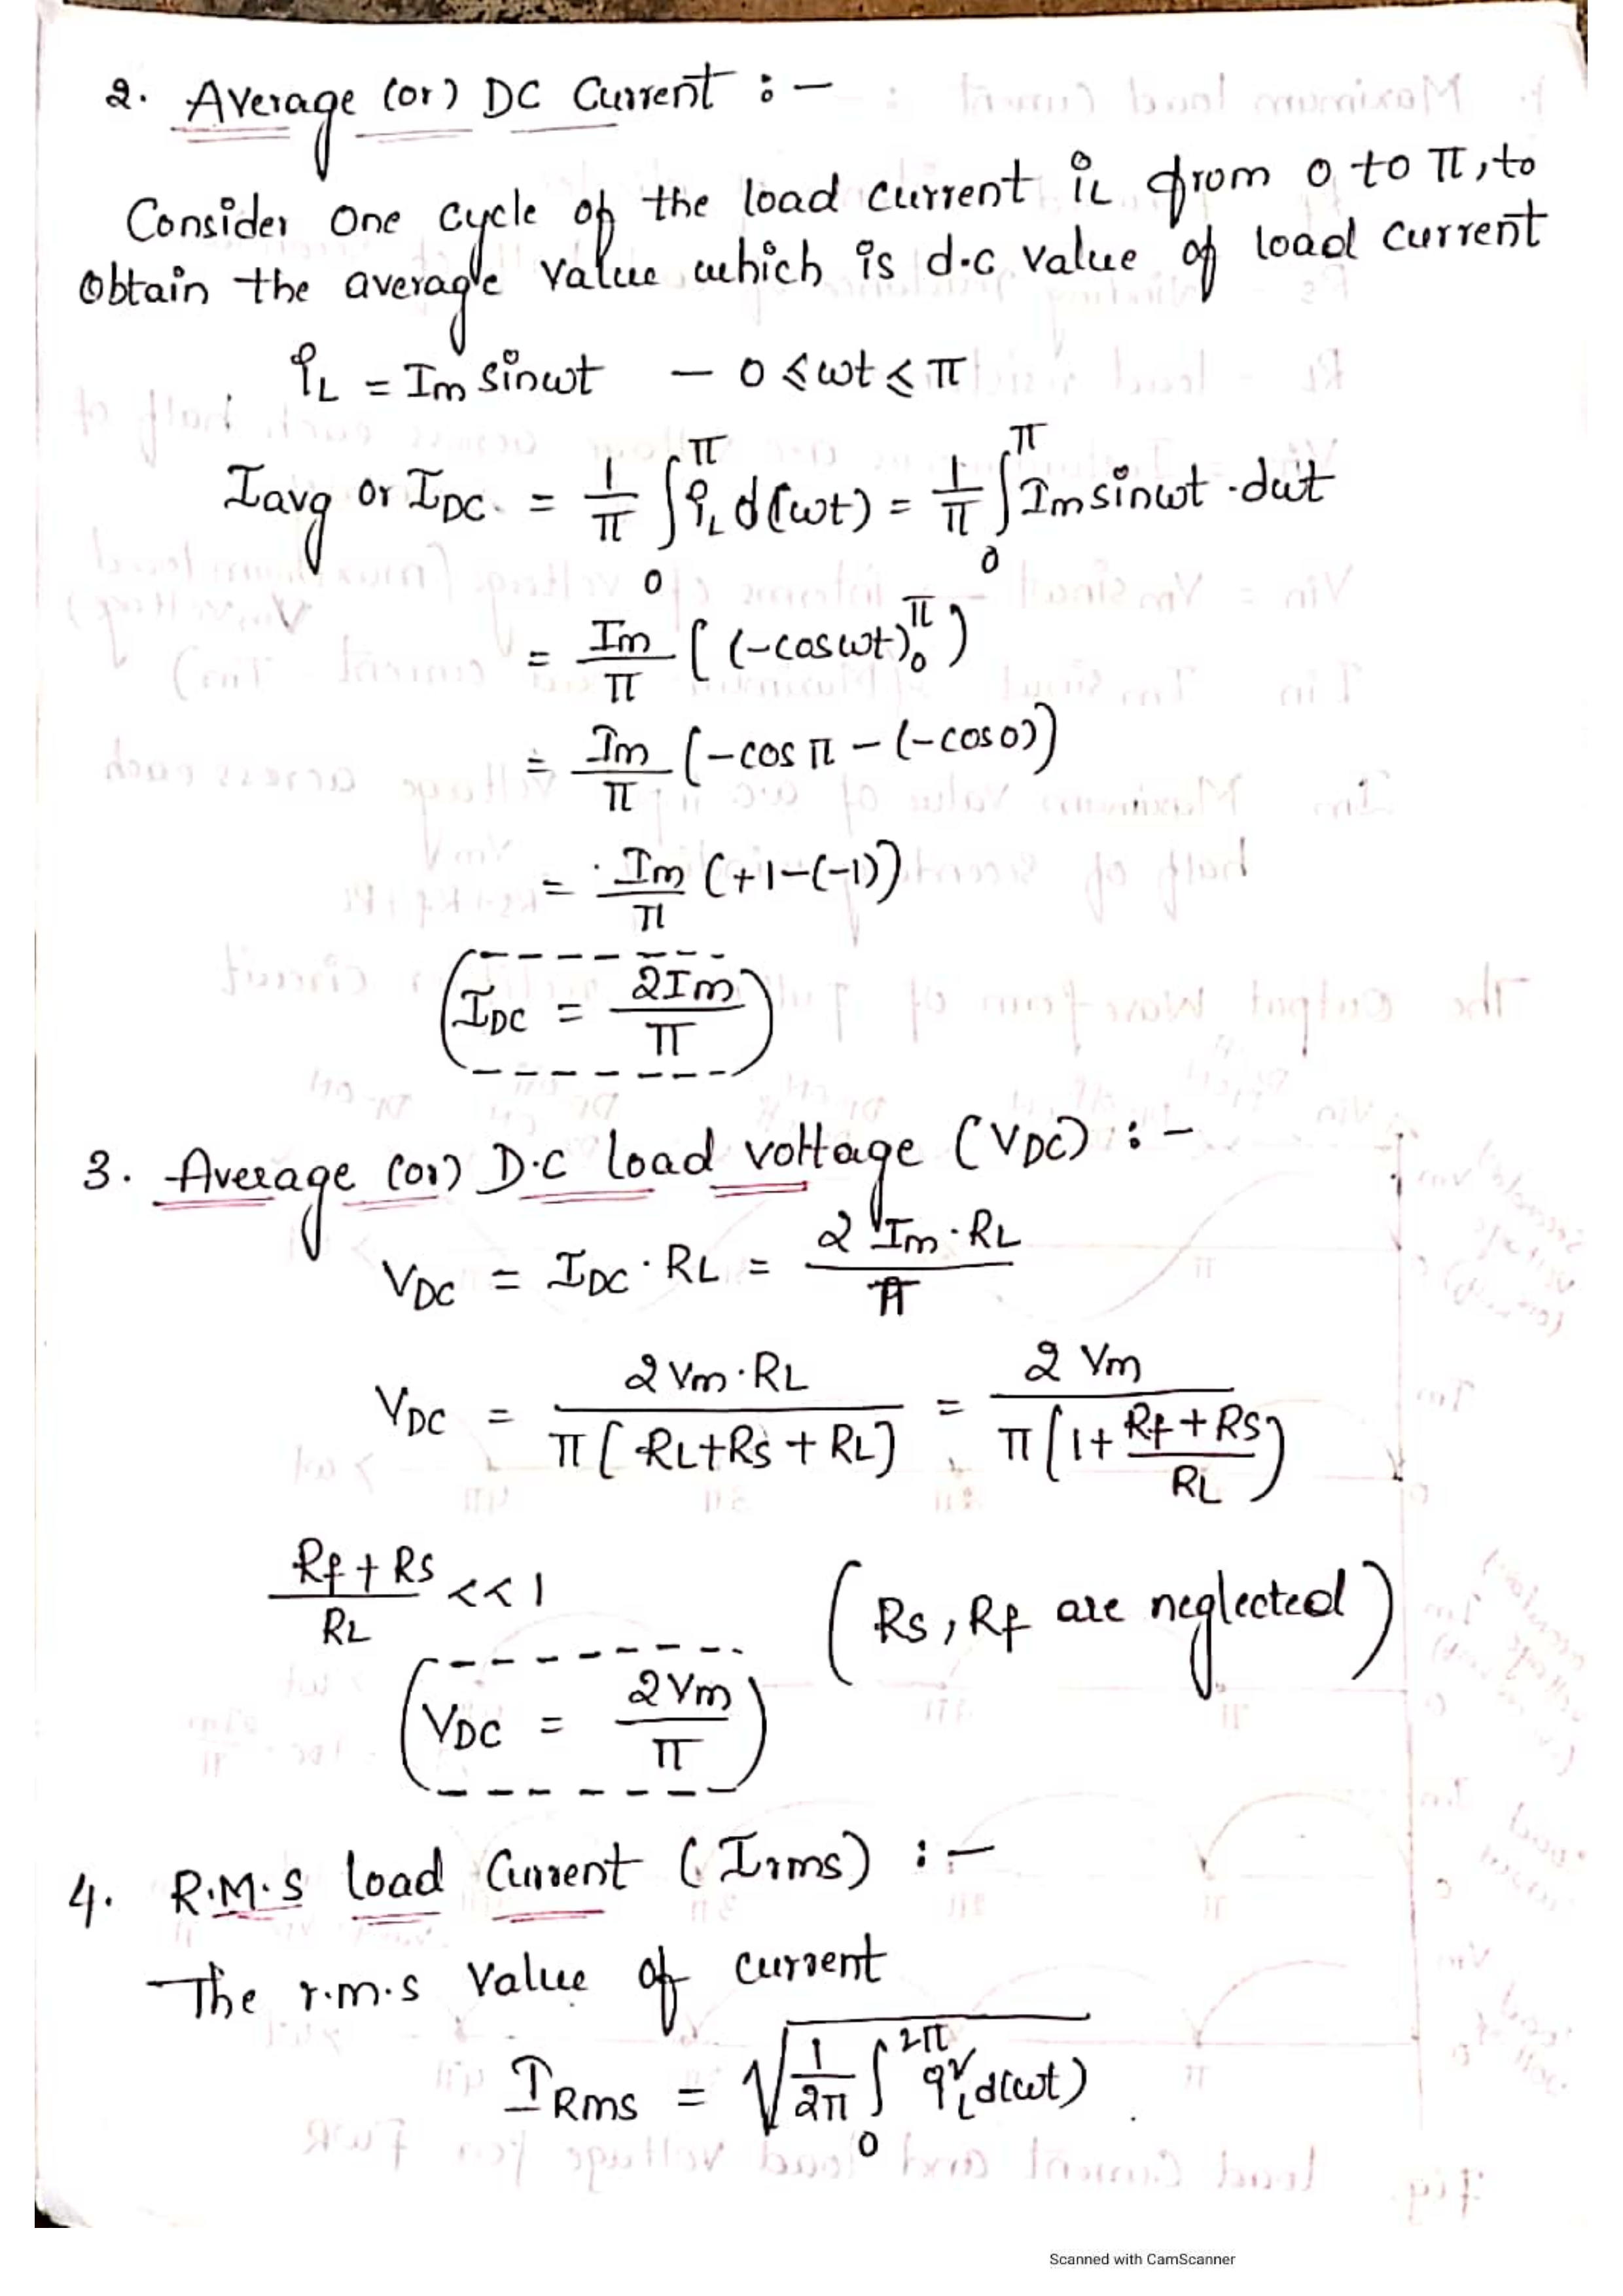 2. Average (or) DC Current :-
Consider One cycle of the load current iL from 0 to π, to
Obtain the average value which is d.c value of load current
iL = Im sinωt – 0 ≤ ωt ≤ π
Iavg or IDC = 1/π ∫₀^π iL d(ωt) = 1/π ∫₀^π Im sinωt · dωt
= Im/π [ (-cosωt)₀^π )
= Im/π (-cos π – (-cos0))
= Im/π (+1-(-1))
IDC = 2Im/π
3. Average (or) D.C load voltage (VDC) :-
VDC = IDC · RL = 2 Im · RL/π
VDC = 2Vm · RL/π [ RL+Rs + RL] = 2 Vm/π (1+ Rf + RS/RL)
Rf + RS/RL << 1 (Rs, Rf are neglected)
VDC = 2Vm/π
4. R.M.S load Current (Irms) :-
The r.m.s Value of current
IRms = √1/2π ∫₀^2π iL² d(ωt)
Scanned with CamScanner